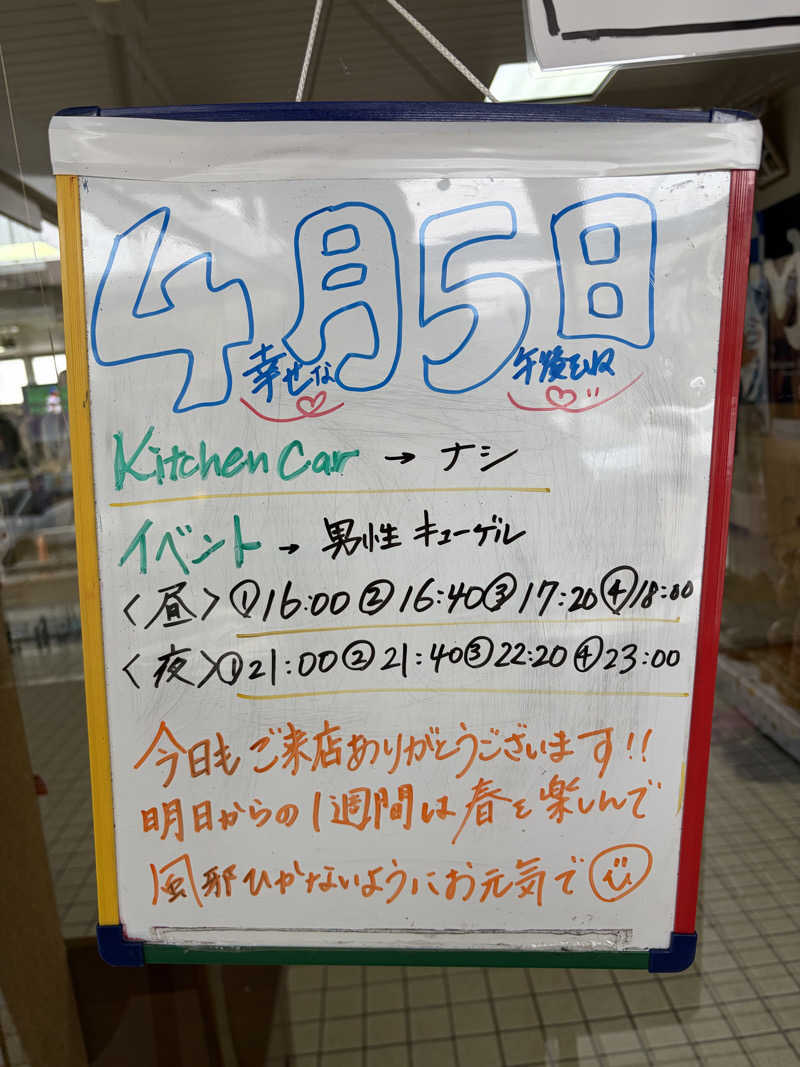 4月5日
幸せな 午後を
Kitchen Car → ナシ
イベント → 男性 キューゲル
〈昼〉①16:00②16:40③17:20④18:00
〈夜〉①21:00②21:40③22:20④23:00
今日もご来店ありがとうございます!!
明日からの1週間は春を楽しんで
風邪ひかないようにお元気で